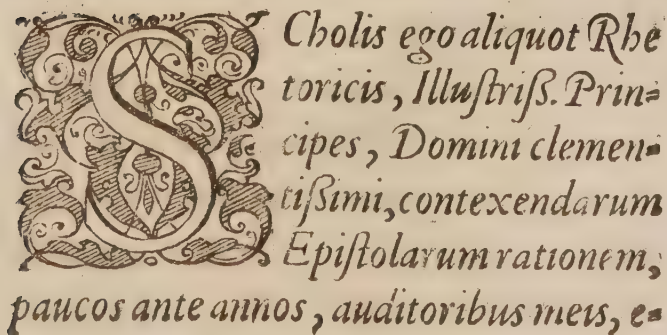 SCholis ego aliquot Rhe
toricis, Illuſtriſs. Prin=
cipes, Domini clemen=
tiſsimi, contexendarum
Epiſtolarum rationem,
paucos ante annos, auditoribus meis, e=